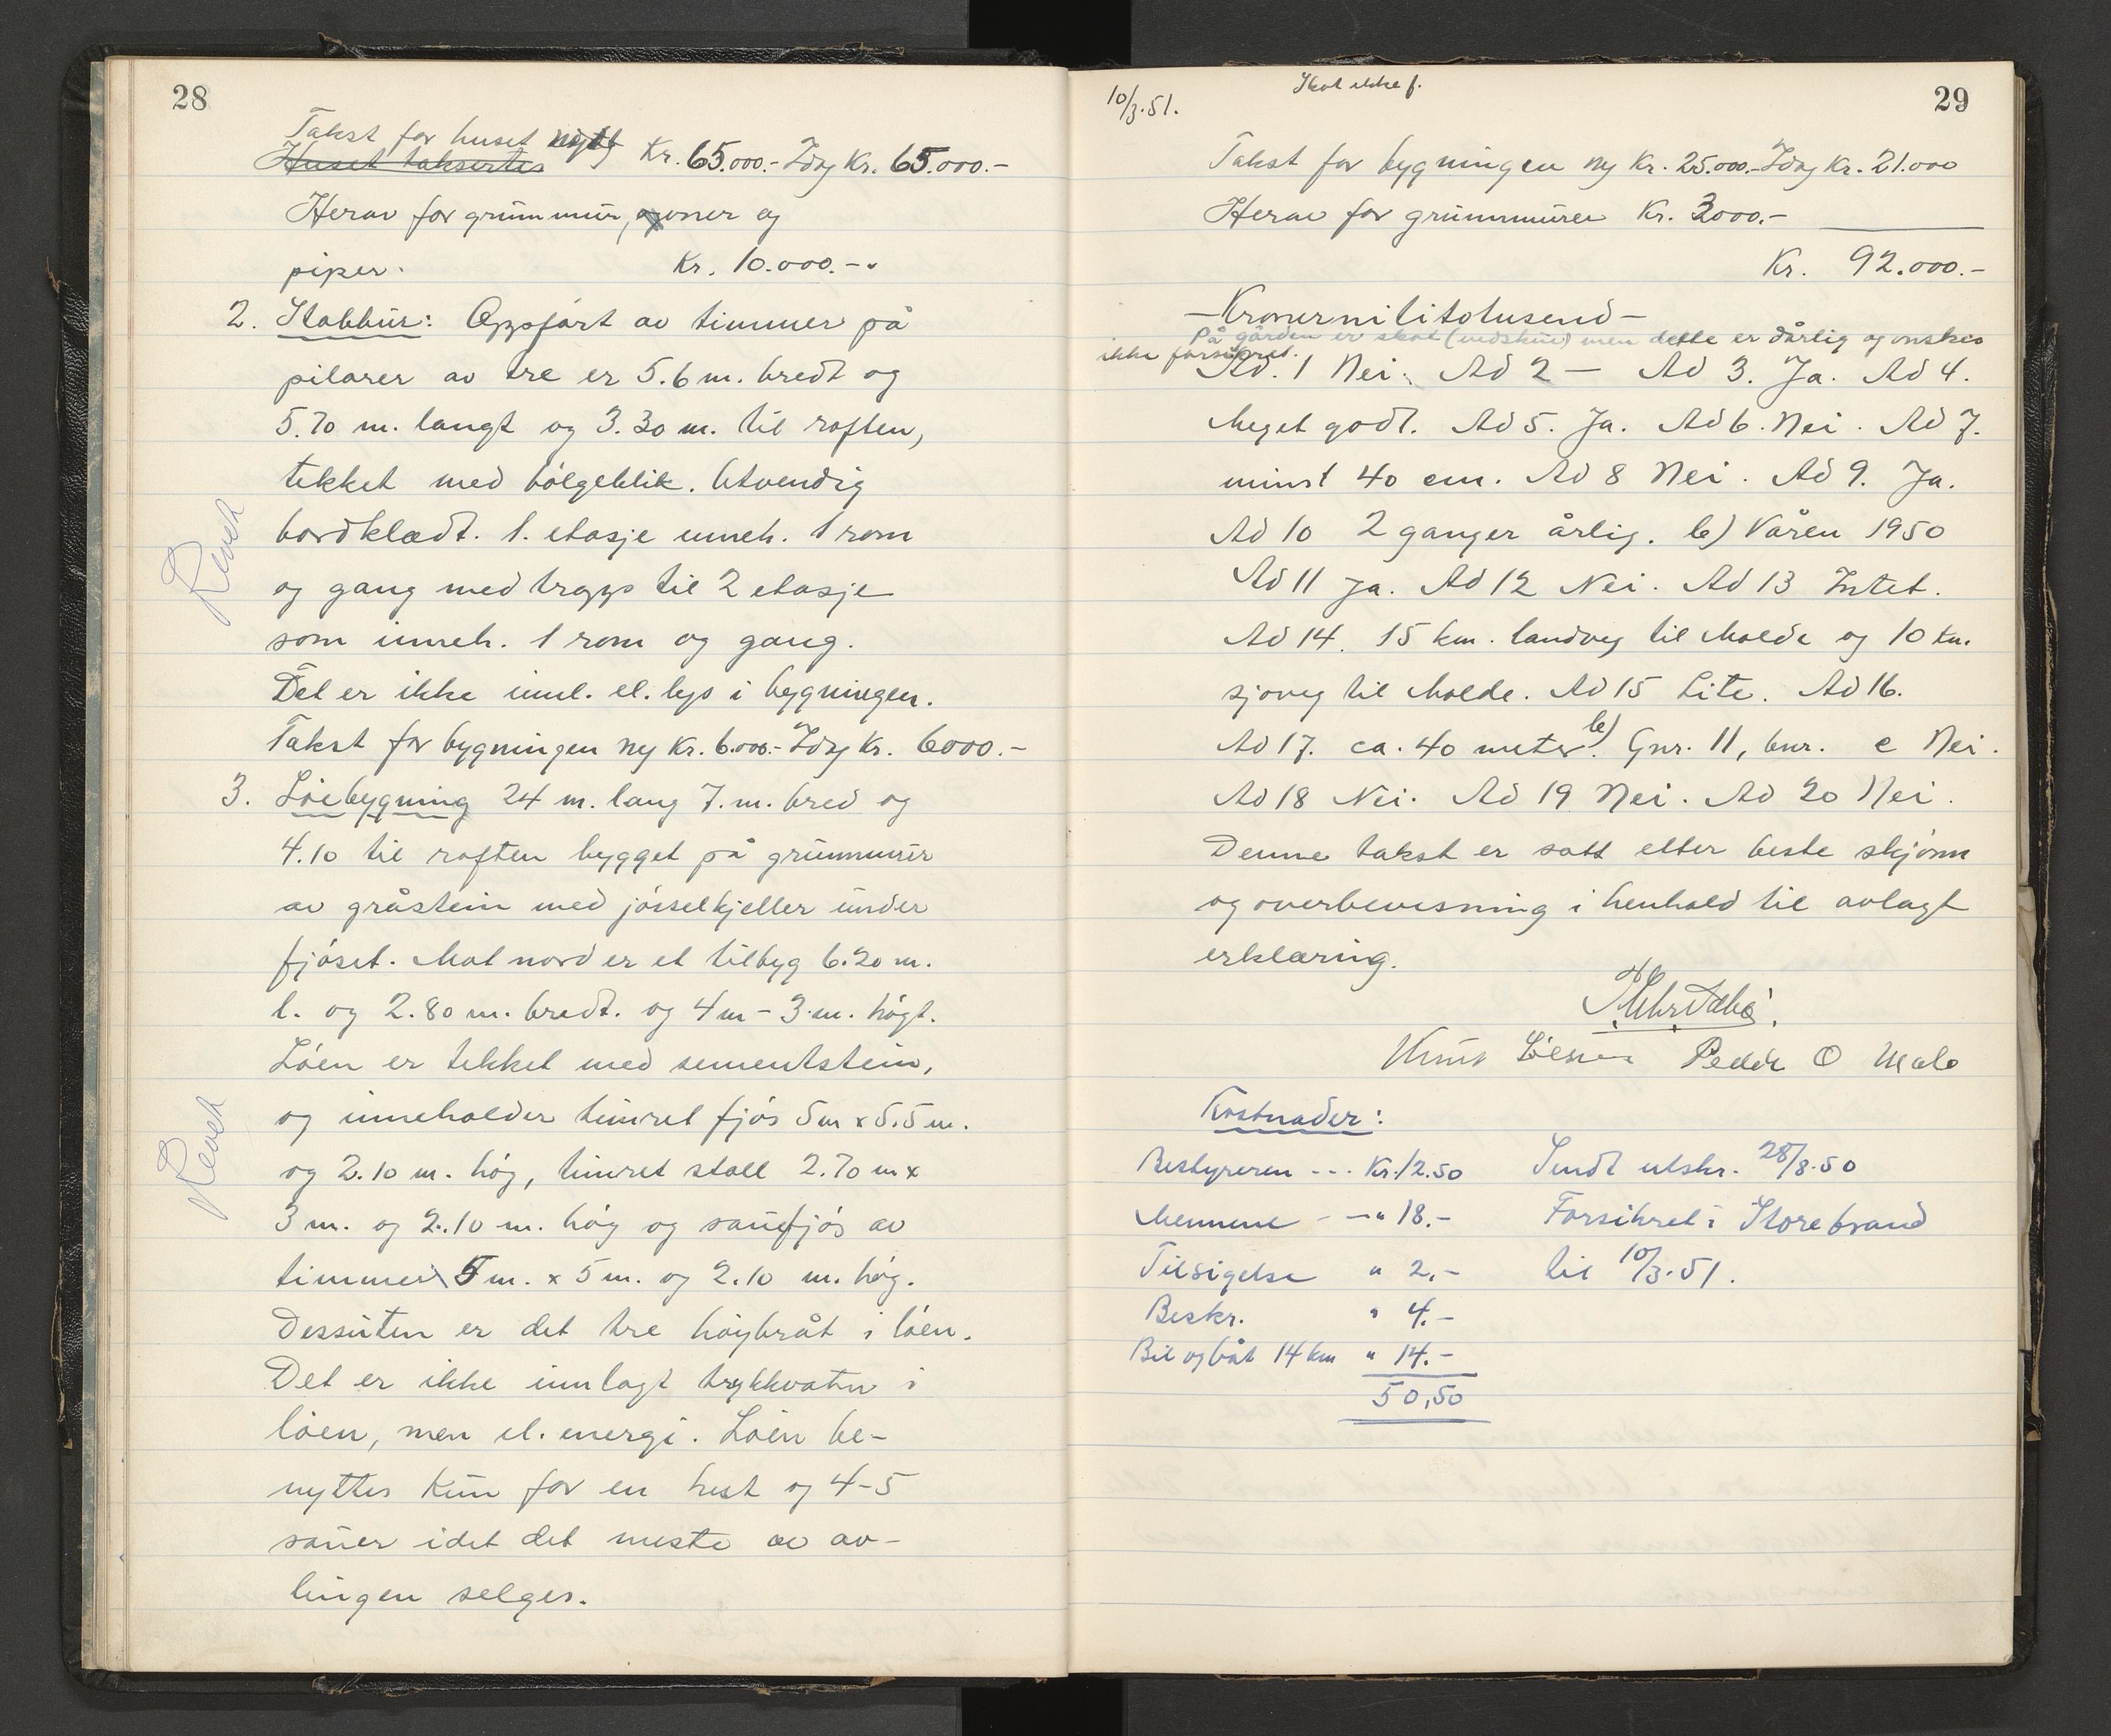 28
Takst for huset Kr. 65.000.- Idag Kr. 65.000.-
Huset takseres
Herav for grunnmur, ovner og
piper. Kr. 10.000.-
2. Stabbur: Oppført av timmer på
pilarer av tre er 5.6 m. bredt og
5.70 m. langt og 3.30 m. til raften,
tekket med bølgeblik. Utvendig
bordklædt. 1. etasje inneh. 1 rom
og gang med trapp til 2 etasje
som inneh. 1 rom og gang.
Det er ikke innl. el. lys i bygningen.
Takst for bygningen ny Kr. 6.000.- Idag Kr. 6000.-
3. Löebygning 24 m. lang 7. m. bred og
4.10 til raften bygget på grunnmur
av gråstein med jösselkjeller under
fjöset. Mot nord er et tilbyg 6.20 m.
l. og 2.80 m. bredt. og 4 m - 3 m. högt.
Löen er tekket med sementstein,
og inneholder timret fjös 5 m x 5.5 m.
og 2.10 m. hög, timret stall 2.70 m x
3 m. og 2.10 m. hög og sauefjös av
timmer 5 m. x 5 m. og 2.10 m. hög.
Dessuten er det tre höybråt i löen.
Det er ikke innlagt trykkvatn i
löen, men el. energi. Löen be-
nyttes kun for en hest og 4-5
sauer idet det meste av av-
lingen selges.
29
10/3.51. Skot ikke f.
Takst for bygningen ny Kr. 25.000.- Idag Kr. 21.000
Herav for grunnmuren Kr. 3000.-
Kr. 92.000.-
- Kronernititotusend -
På gården er skot (vedskur) men dette er dårlig og önskes
ikke forsikret.
Ad. 1 Nei. Ad 2 — Ad 3. Ja. Ad 4.
Meget godt. Ad 5. Ja. Ad 6. Nei. Ad 7.
minst 40 cm. Ad 8 Nei. Ad 9. Ja.
Ad 10 2 ganger årlig. b) Våren 1950
Ad 11 Ja. Ad 12 Nei. Ad 13 Intet.
Ad 14. 15 km. landveg til Molde og 10 km.
sjöveg til Molde. Ad 15 Lite. Ad 16.
Ad 17. ca. 40 meter. b) Gnr. 11, bnr. c Nei.
Ad 18 Nei. Ad 19 Nei. Ad 20 Nei.
Denne takst er satt etter beste skjönn
og overbevisning i henhold til avlagt
erklæring.
Peder O Malo
Kostnader:
Bestyreren --- Kr. 12.50 Sendt utskr. 28/8.50
Mennene - -" 18.- Forsikret i Storebrand
Tilsigelse " 2,- til 10/3.51.
Beskr. " 4.-
Bil og båt 14 km " 14.-
50,50